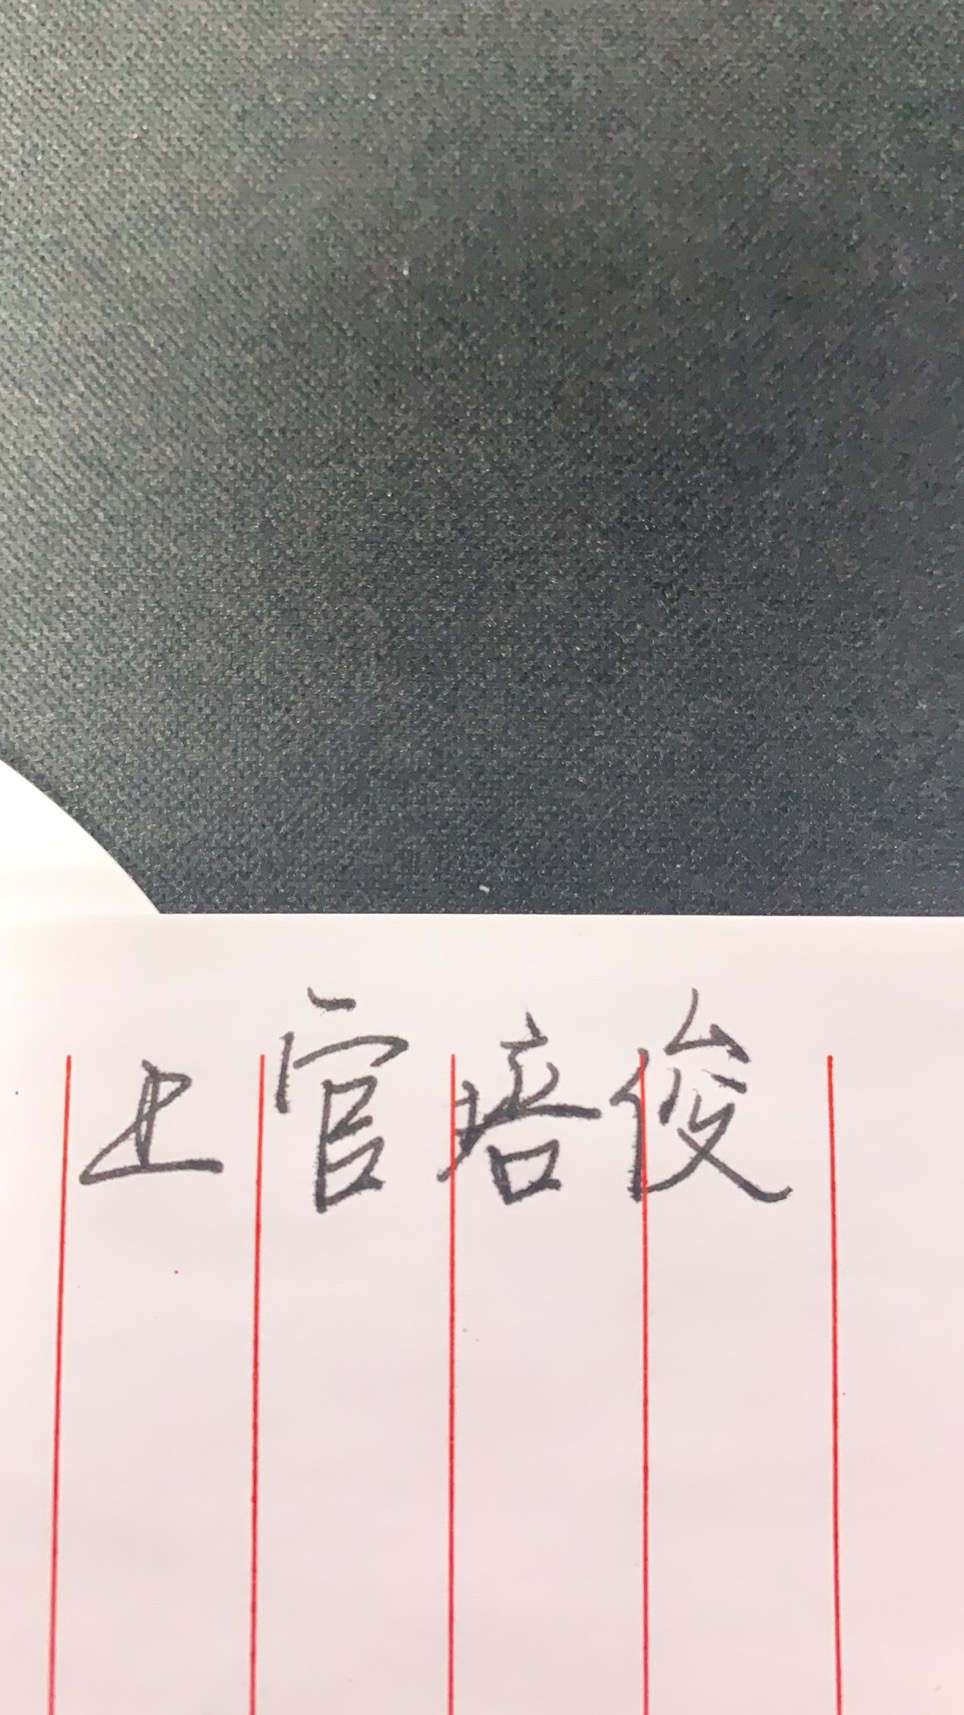 上官培俊